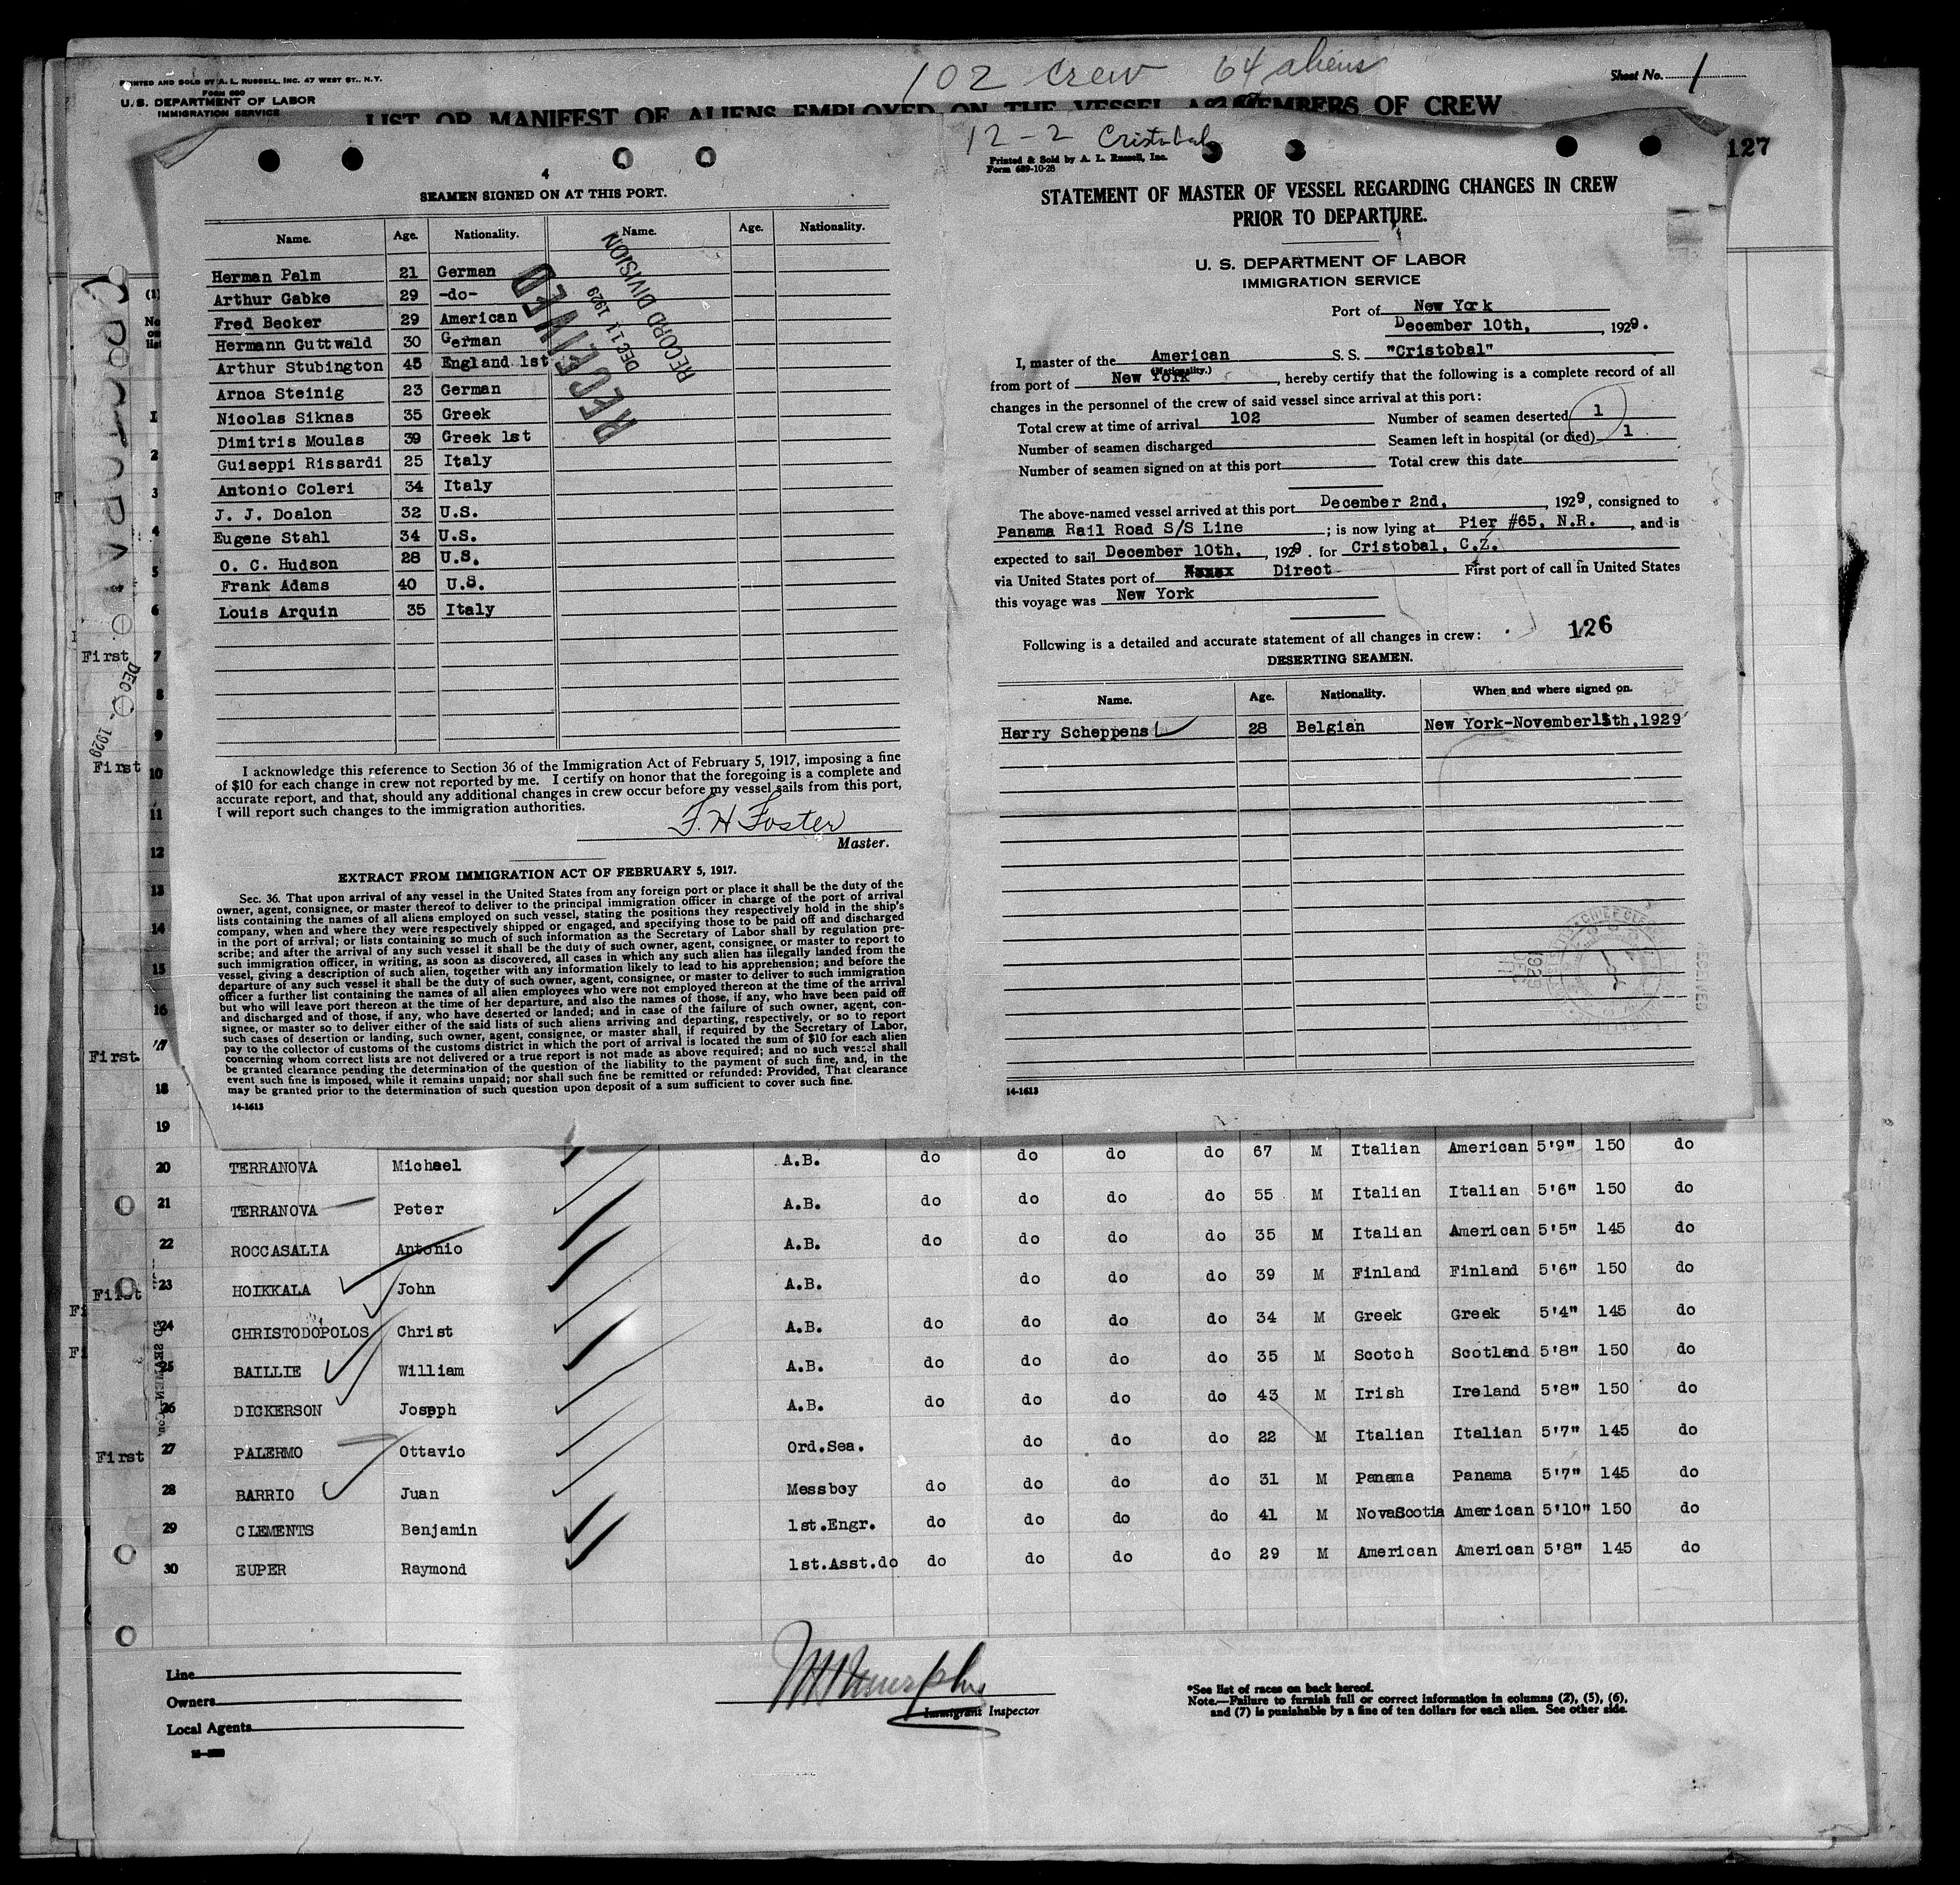 PRINTED AND SOLD BY A. L. RUSSELL, INC. 47 WEST ST., N.Y.
Form 680
U. S. DEPARTMENT OF LABOR
IMMIGRATION SERVICE
102 crew 64 aliens
Sheet No. 1
LIST OR MANIFEST OF ALIENS EMPLOYED ON THE VESSEL AS MEMBERS OF CREW
127
4
SEAMEN SIGNED ON AT THIS PORT.
Name. Age. Nationality. Name. Age. Nationality.
Herman Palm 21 German
Arthur Gabke 29 -do-
Fred Becker 29 American
Hermann Guttwald 30 German
Arthur Stubington 45 England 1st
Arnoa Steinig 23 German
Nicolas Siknas 35 Greek
Dimitris Moulas 39 Greek 1st
Guiseppi Rissardi 25 Italy
Antonio Coleri 34 Italy
J. J. Doalon 32 U.S.
Eugene Stahl 34 U.S.
O. C. Hudson 28 U.S.
Frank Adams 40 U.S.
Louis Arquin 35 Italy
RECEIVED
DEC 11 1929
RECORD DIVISION
I acknowledge this reference to Section 36 of the Immigration Act of February 5, 1917, imposing a fine
of $10 for each change in crew not reported by me. I certify on honor that the foregoing is a complete and
accurate report, and that, should any additional changes in crew occur before my vessel sails from this port,
I will report such changes to the immigration authorities.
F. H Foster
Master.
EXTRACT FROM IMMIGRATION ACT OF FEBRUARY 5, 1917.
Sec. 36. That upon arrival of any vessel in the United States from any foreign port or place it shall be the duty of the
owner, agent, consignee, or master thereof to deliver to the principal immigration officer in charge of the port of arrival
lists containing the names of all aliens employed on such vessel, stating the positions they respectively hold in the ship's
company, when and where they were respectively shipped or engaged, and specifying those to be paid off and discharged
in the port of arrival; or lists containing so much of such information as the Secretary of Labor shall by regulation pre-
scribe; and after the arrival of any such vessel it shall be the duty of such owner, agent, consignee, or master to report to
such immigration officer, in writing, as soon as discovered, all cases in which any such alien has illegally landed from the
vessel, giving a description of such alien, together with any information likely to lead to his apprehension; and before the
departure of any such vessel it shall be the duty of such owner, agent, consignee, or master to deliver to such immigration
officer a further list containing the names of all alien employees who were not employed thereon at the time of the arrival
but who will leave port thereon at the time of her departure, and also the names of those, if any, who have been paid off
and discharged and of those, if any, who have deserted or landed; and in case of the failure of such owner, agent, con-
signee, or master so to deliver either of the said lists of such aliens arriving and departing, respectively, or so to report
such cases of desertion or landing, such owner, agent, consignee, or master shall, if required by the Secretary of Labor,
pay to the collector of customs of the customs district in which the port of arrival is located the sum of $10 for each alien
concerning whom correct lists are not delivered or a true report is not made as above required; and no such vessel shall
be granted clearance pending the determination of the question of the liability to the payment of such fine, and, in the
event such fine is imposed, while it remains unpaid; nor shall such fine be remitted or refunded: Provided, That clearance
may be granted prior to the determination of such question upon deposit of a sum sufficient to cover such fine.
14-1613
12-2 Cristobal
Printed & Sold by A. L. Russell, Inc.
Form 689-10-28
STATEMENT OF MASTER OF VESSEL REGARDING CHANGES IN CREW
PRIOR TO DEPARTURE.
U. S. DEPARTMENT OF LABOR
IMMIGRATION SERVICE
Port of New York
December 10th, , 1929.
I, master of the American S. S. "Cristobal"
(Nationality.)
from port of New York , hereby certify that the following is a complete record of all
changes in the personnel of the crew of said vessel since arrival at this port:
Total crew at time of arrival 102 Number of seamen deserted 1
Number of seamen discharged Seamen left in hospital (or died) 1
Number of seamen signed on at this port Total crew this date
The above-named vessel arrived at this port December 2nd, , 1929, consigned to
Panama Rail Road S/S Line ; is now lying at Pier #65, N.R. , and is
expected to sail December 10th, , 1929. for Cristobal, C.Z.
via United States port of Direct First port of call in United States
this voyage was New York
Following is a detailed and accurate statement of all changes in crew:
126
DESERTING SEAMEN.
Name. Age. Nationality. When and where signed on.
Harry Scheppens 28 Belgian New York-November 15th, 1929
14-1613
First 7
8
9
First 10
11
12
13
14
15
16
First 17
18
19
20 TERRANOVA Michael A.B. do do do do 67 M Italian American 5'9" 150 do
21 TERRANOVA Peter A.B. do do do do 55 M Italian Italian 5'6" 150 do
22 ROCCASALIA Antonio A.B. do do do do 35 M Italian American 5'5" 145 do
First 23 HOIKKALA John A.B. do do do 39 M Finland Finland 5'6" 150 do
24 CHRISTODOPOLOS Christ A.B. do do do do 34 M Greek Greek 5'4" 145 do
25 BAILLIE William A.B. do do do do 35 M Scotch Scotland 5'8" 150 do
26 DICKERSON Joseph A.B. do do do do 43 M Irish Ireland 5'8" 150 do
First 27 PALERMO Ottavio Ord.Sea. do do do 22 M Italian Italian 5'7" 145 do
28 BARRIO Juan Messboy do do do do 31 M Panama Panama 5'7" 145 do
29 CLEMENTS Benjamin 1st.Engr. do do do do 41 M NovaScotia American 5'10" 150 do
30 EUPER Raymond 1st.Asst.do do do do do 29 M American American 5'8" 145 do
Line
Owners
Local Agents
Immigrant Inspector
*See list of races on back hereof.
Note.—Failure to furnish full or correct information in columns (2), (5), (6),
and (7) is punishable by a fine of ten dollars for each alien. See other side.